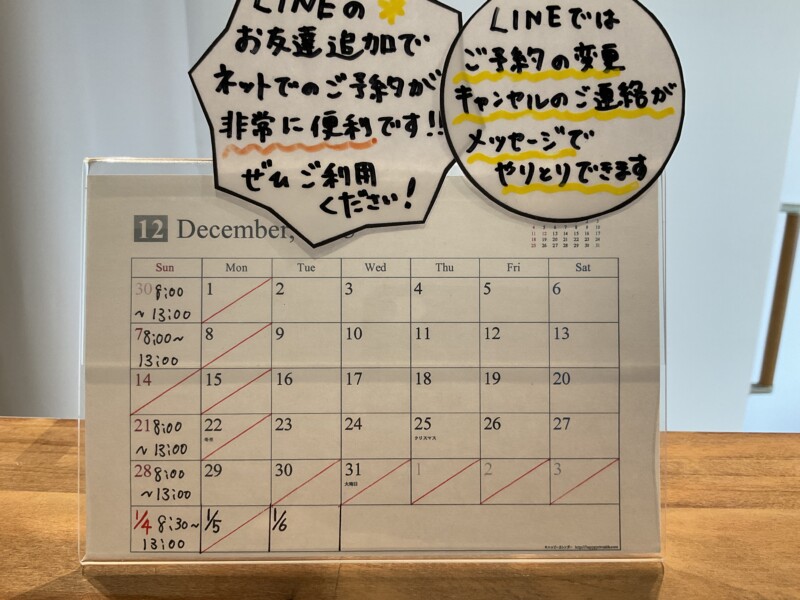 LINEの
お友達追加で
ネットでのご予約が
非常に便利です!!
ぜひご利用
ください!
LINEでは
ご予約の変更
キャンセルのご連絡が
メッセージで
やりとりできます
12 December,
Sun Mon Tue Wed Thu Fri Sat
30 8:00 1 2 3 4 5 6
~ 13:00
7 8:00~ 8 9 10 11 12 13
13:00
14 15 16 17 18 19 20
21 8:00 22 23 24 25 26 27
~ 13:00 冬至 クリスマス
28 8:00 29 30 31 1 2 3
~13:00 大晦日
1/4 8:30~ 1/5 1/6
13:00